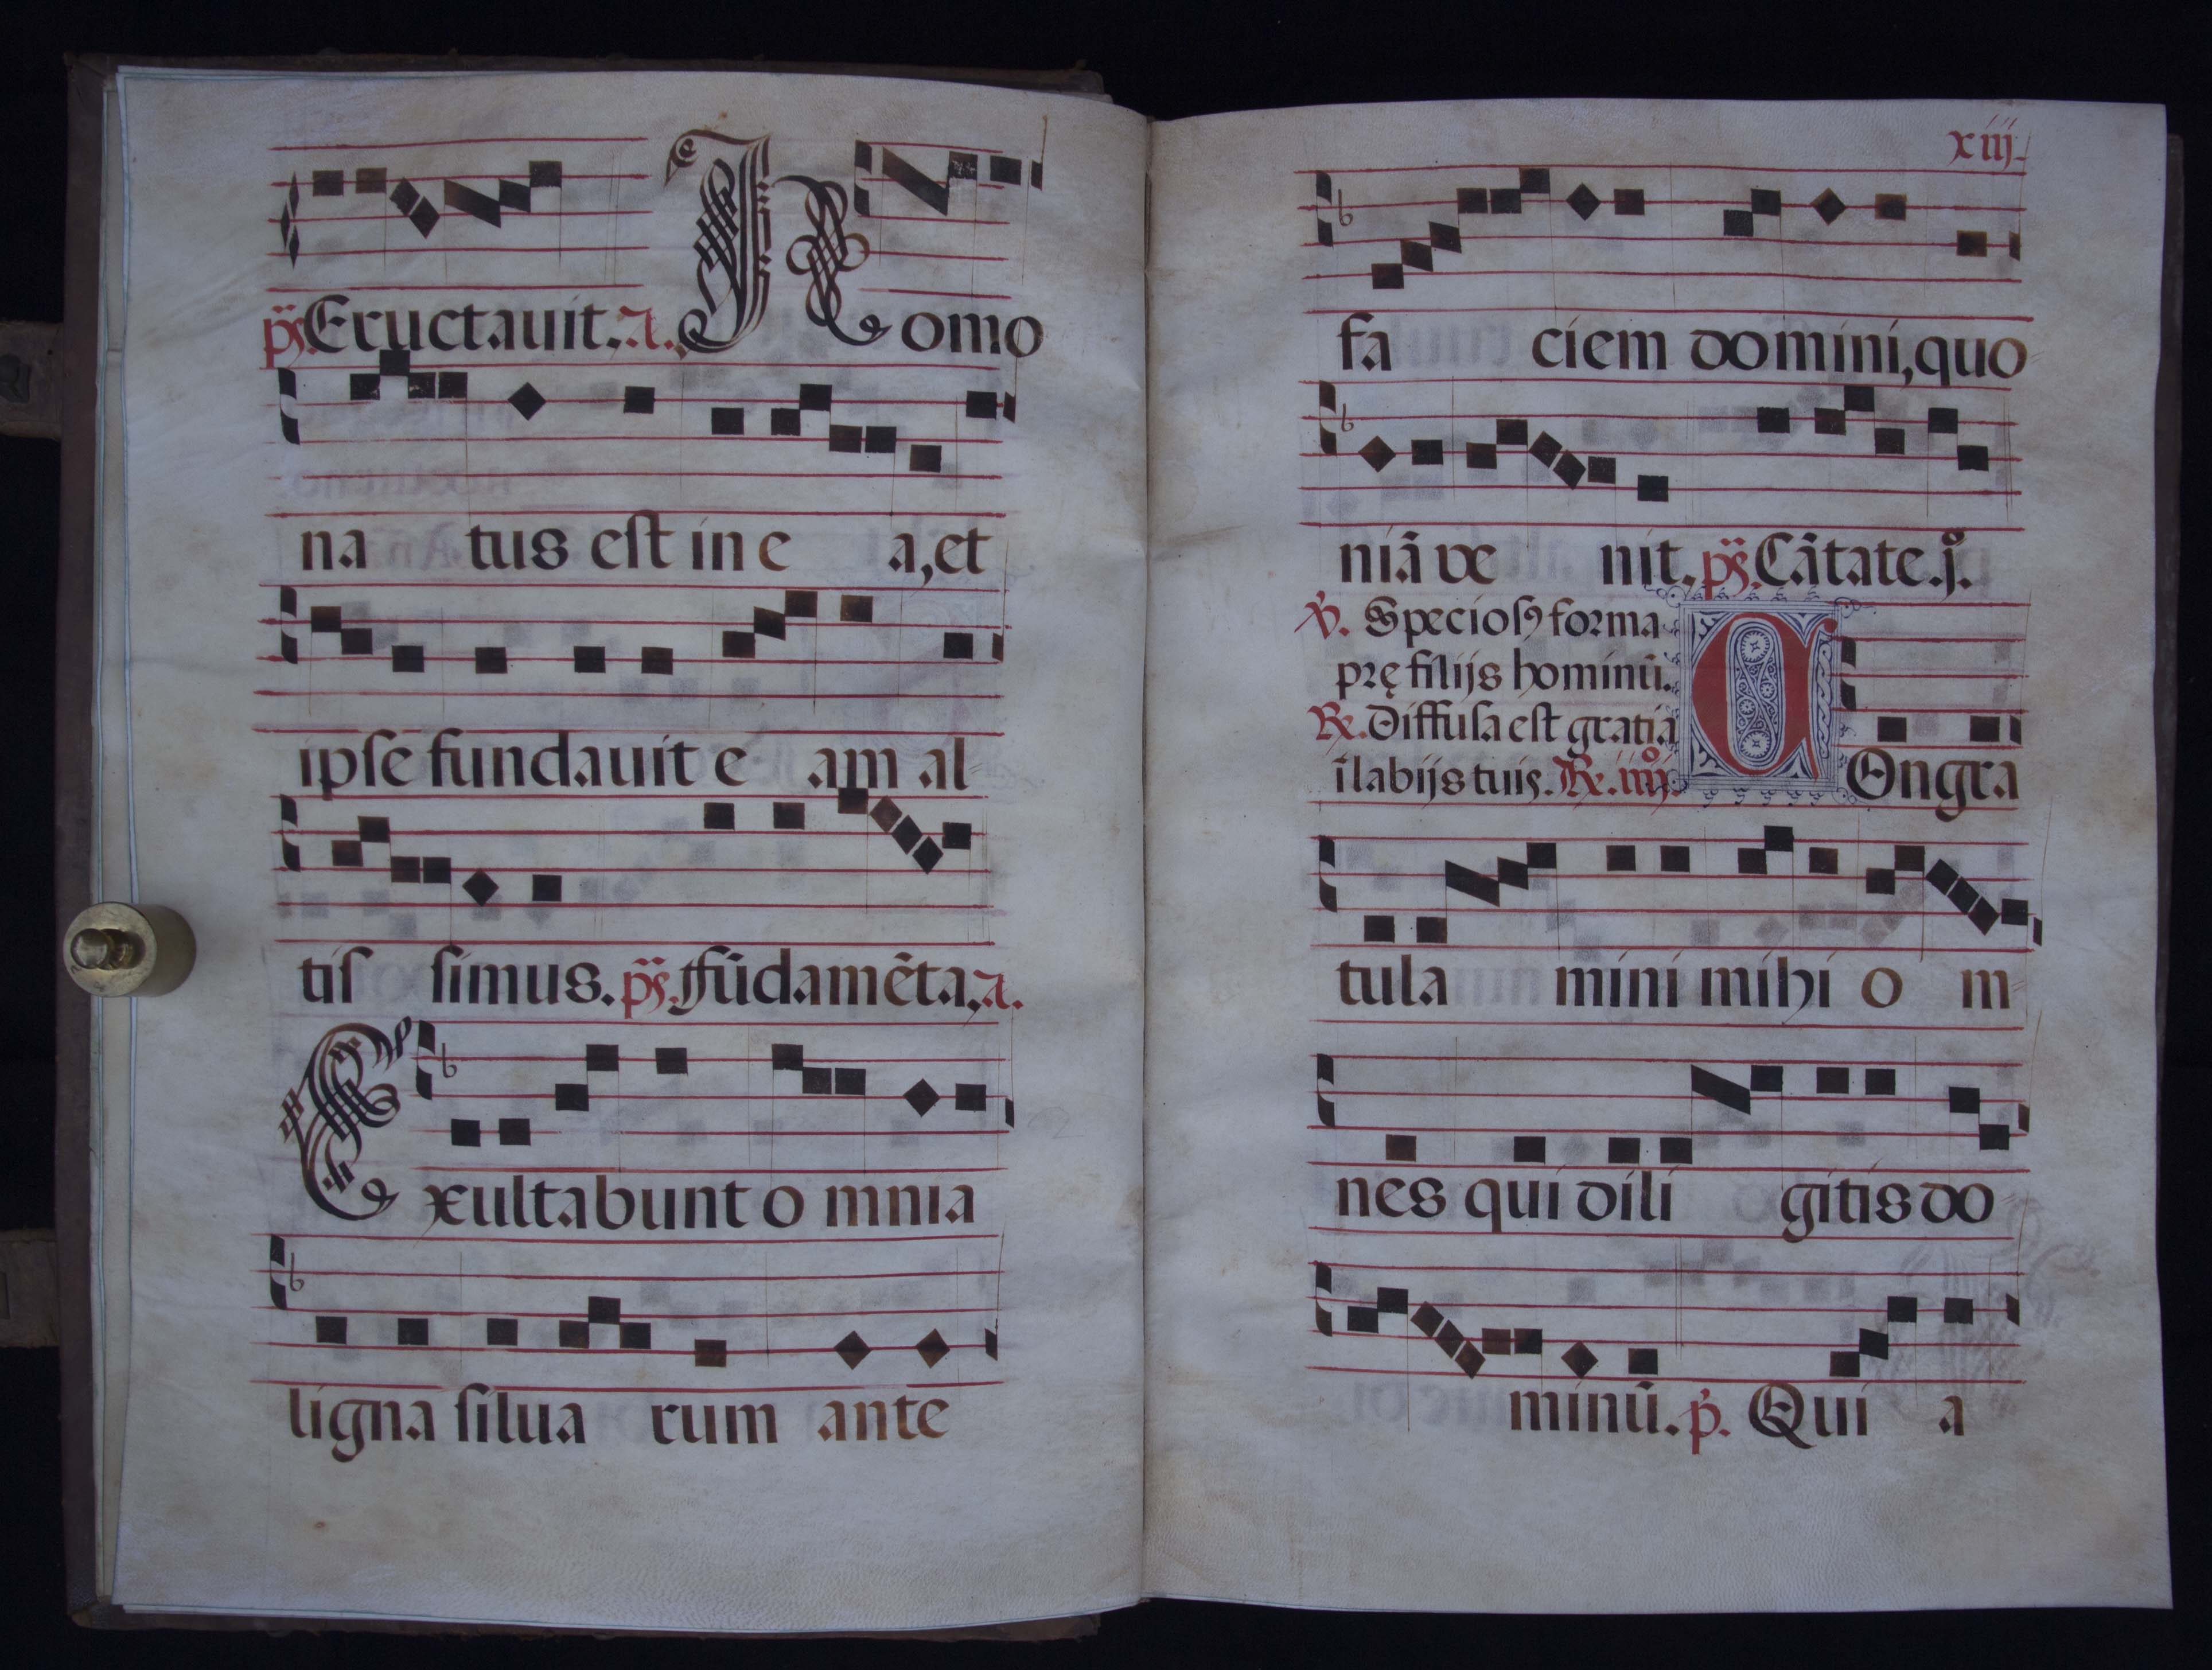 ps. Eructauit. a. H omo
na tus est in e a, et
ipse fundauit e am al
tis simus. ps. Fūdamēta. a.
E xultabunt o mnia
ligna silua rum ante
xiij.
fa ciem domini, quo
niā ve nit. ps. Cātate. j.º
℣. Speciosꝰ forma
prę filijs hominū.
℟. Diffusa est gratia
ī labijs tuis. ℟. iiij.º
C Ongra
tula mini mihi o m
nes qui dili gitis do
minū. p. Qui a